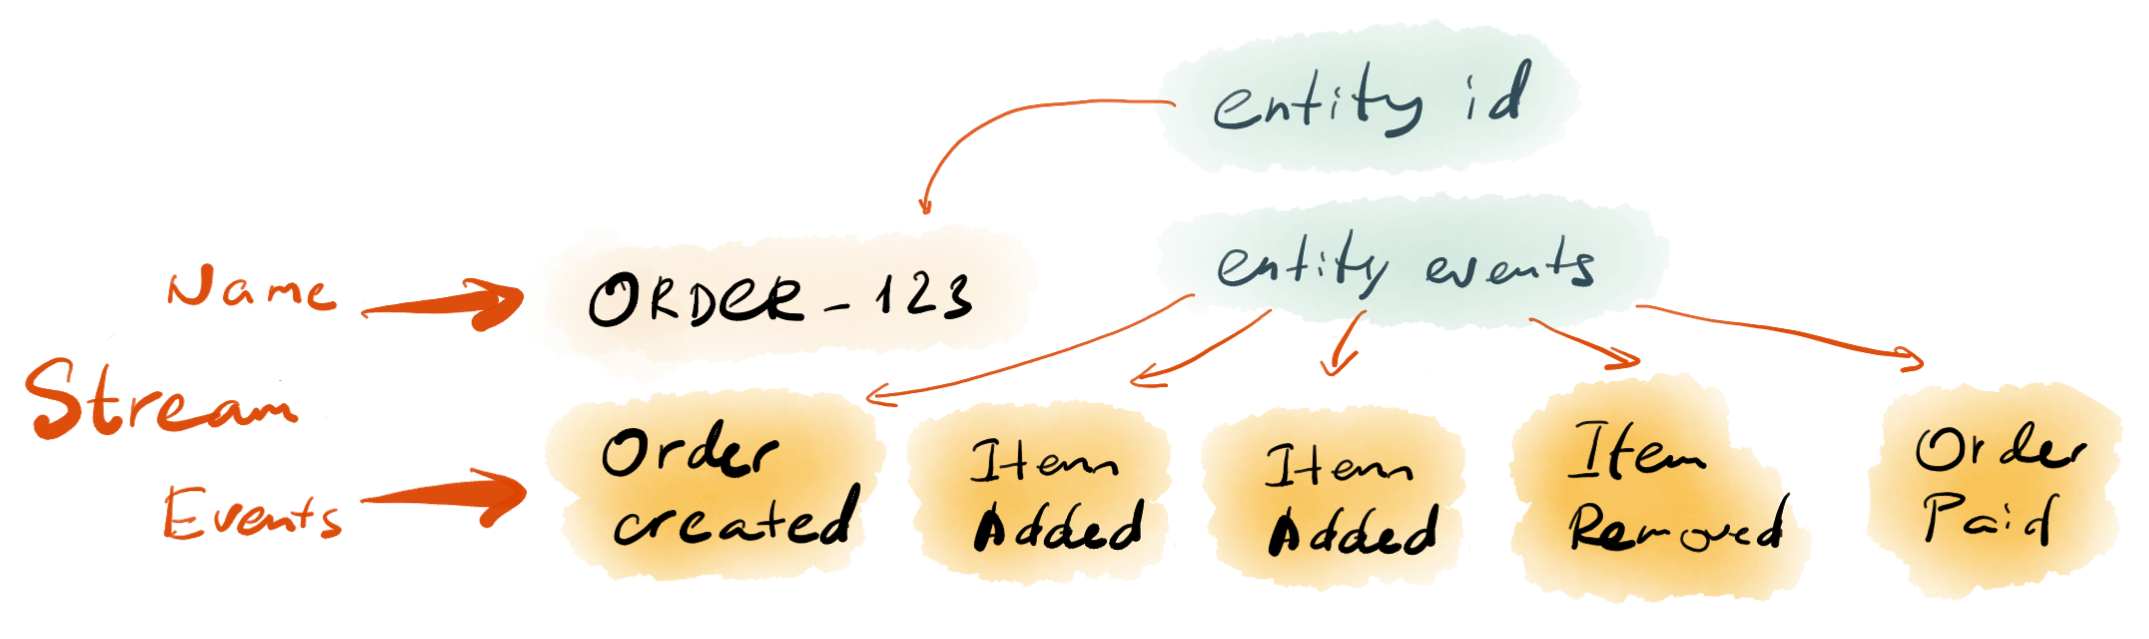 entity id
entity events
Name
ORDER-123
Stream
Events
Order
created
Item
Added
Item
Added
Item
Removed
Order
Paid